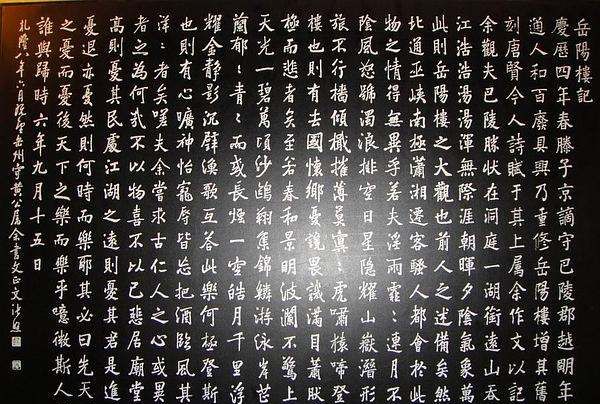 岳陽樓記
慶曆四年春滕子京謫守巴陵郡越明年
通人和百廢具興乃重修岳陽樓增其舊
刻唐賢今人詩賦于其上屬余作文以記
余觀夫巴陵勝狀在洞庭一湖銜遠山吞
江浩浩湯湯渾無際涯朝暉夕陰氣象萬
此則岳陽樓之大觀也前人之述備矣然
北通巫峽南極瀟湘遷客騷人都會於此
物之情得無異乎若夫淫雨霏〻連月不
陰風怒號濁浪排空日星隱耀山嶽潛形
旅不行檣傾檝摧薄莫冥〻虎嘯猿啼登
樓也則有去國懷鄉憂讒畏譏滿目蕭然
極而悲者矣至若春和景明波瀾不驚上
天光一碧萬頃沙鷗翔集錦鱗游泳岸芷
蘭郁〻青〻而或長煙一空皓月千里浮
耀金靜影沉璧漁歌互答此樂何極登斯
也則有心曠神怡寵辱皆忘把酒臨風其
洋〻者矣嗟夫余嘗求古仁人之心或
者之為何哉不以物喜不以己悲居廟堂
高則憂其民處江湖之遠則憂其君是進
憂退亦憂然則何時而樂耶其必曰先天
之憂而憂後天下之樂而樂乎噫微斯人
誰與歸時六年九月十五日
乾隆八年六月既望岳州守黃公屬余書文正文張照